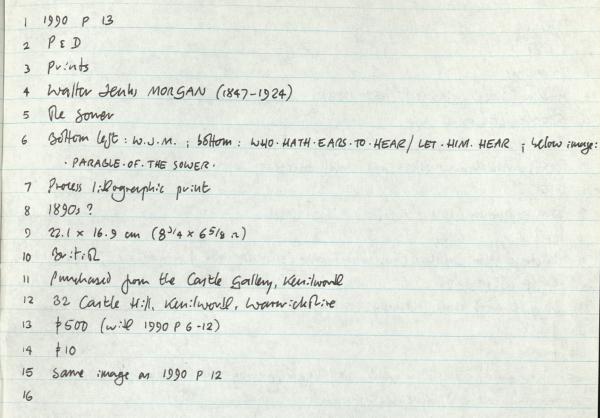 1 1990 P 13
2 P & D
3 Prints
4 Walter Jenks MORGAN (1847-1924)
5 The Sower
6 Bottom left: W.J.M. ; bottom: WHO·HATH·EARS·TO·HEAR/ LET·HIM·HEAR ; below image:
· PARABLE·OF·THE SOWER·
7 Process lithographic print
8 1890s ?
9 22.1 x 16.9 cm (8 3/4 x 6 5/8 in)
10 British
11 Purchased from the Castle Gallery, Kenilworth
12 32 Castle Hill, Kenilworth, Warwickshire
13 £500 (with 1990 P 6-12)
14 £10
15 Same image as 1990 P 12
16